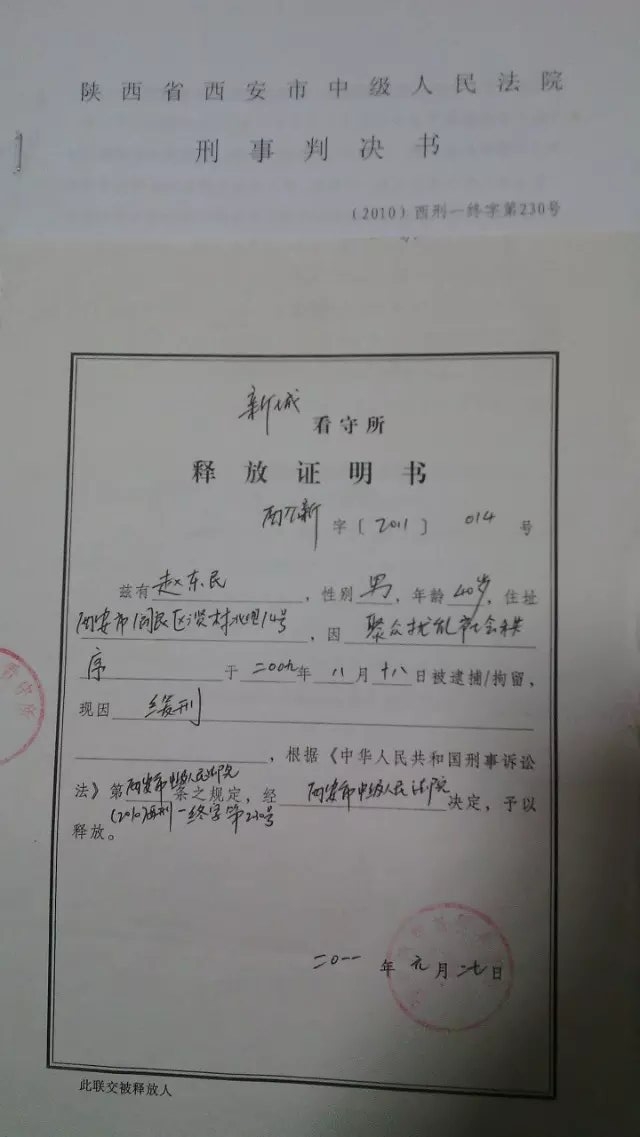 陕西省西安市中级人民法院
刑事判决书
(2010)西刑一终字第230号
新城 看守所
释放证明书
西公新 字〔2011〕014号
兹有 赵东民 ，性别 男 ，年龄 40岁 ，住址
西安市 区 村北 14号 ，因 聚众扰乱社会秩
序 于 二00九 年 八 月 十八 日被逮捕/拘留，
现因 缓刑
，根据《中华人民共和国刑事诉讼
法》第 西安市中级人民法院 条之规定，经 西安市中级人民法院 决定，予以
(2010)西刑一终字第230号
释放。
二0一一 年 元 月 二七 日
此联交被释放人